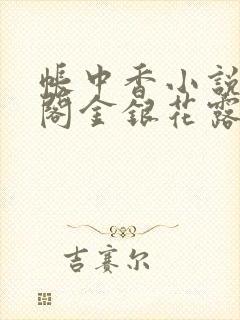 帳中香小說
閣金銀花露
吉賽尔